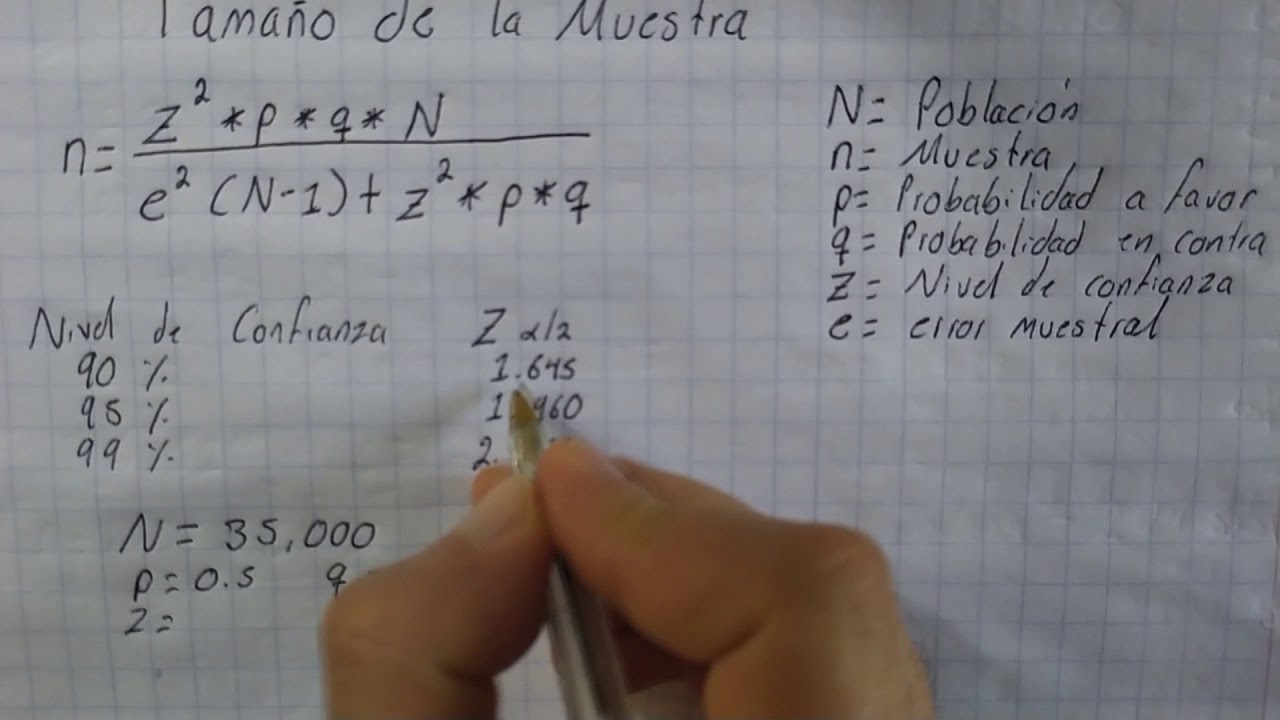 Tamaño de la Muestra
n= z² * p * q * N
e² (N-1) + z² * p * q
N= Población
n= Muestra
p= Probabilidad a favor
q= Probabilidad en contra
Z= Nivel de confianza
e= error muestral
Nivel de Confianza Z α/2
90 % 1.645
95 % 1.960
99 % 2.
N = 35,000
p = 0.5 q =
z =